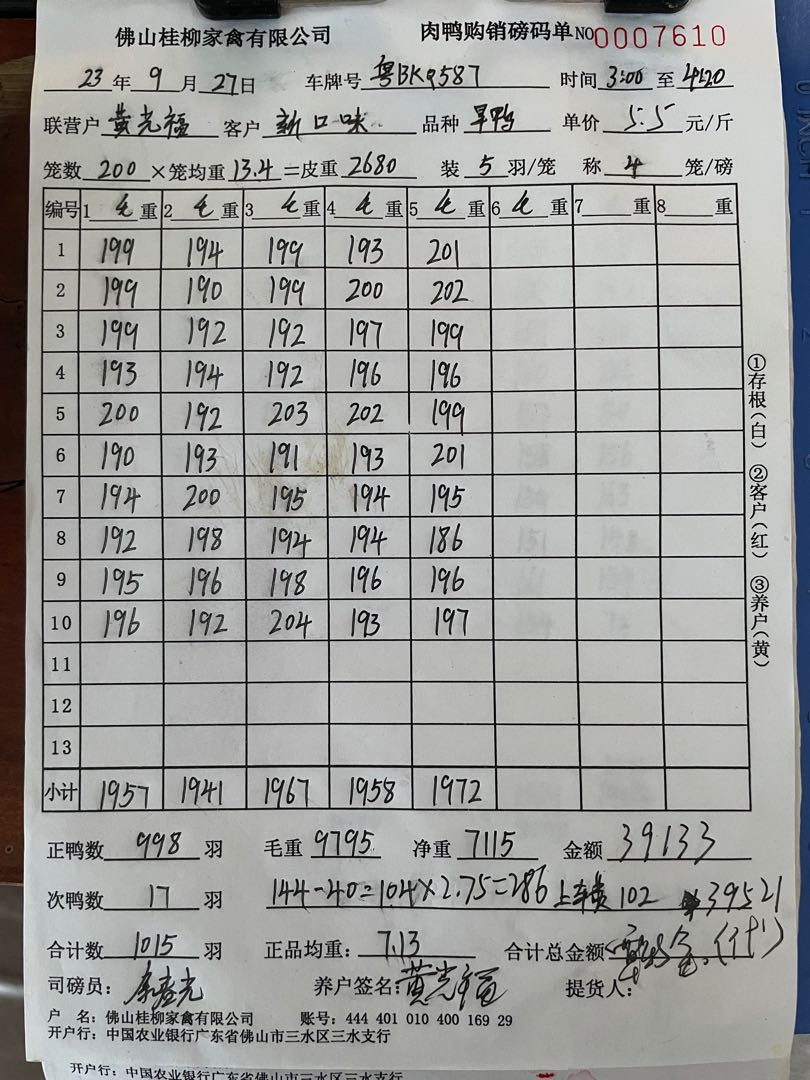 佛山桂柳家禽有限公司 肉鸭购销磅码单 NO 0007610
23 年 9 月 27 日 车牌号 粤BK9587 时间 3:00 至 4:20
联营户 黄光福 客户 新口味 品种 旱鸭 单价 5.5 元/斤
笼数 200 ×笼均重 13.4 =皮重 2680 装 5 羽/笼 称 4 笼/磅
编号 1 毛 重 2 毛 重 3 毛 重 4 毛 重 5 毛 重 6 毛 重 7 重 8 重
1 199 194 199 193 201
2 199 190 199 200 202
3 199 192 192 197 199
4 193 194 192 196 196
5 200 192 203 202 199
6 190 193 191 193 201
7 194 200 195 194 195
8 192 198 194 194 186
9 195 196 198 196 196
10 196 192 204 193 197
11
12
13
小计 1957 1941 1967 1958 1972
①存根(白) ②客户(红) ③养户(黄)
正鸭数 998 羽 毛重 9795 净重 7115 金额 39133
次鸭数 17 羽 144-40=104×2.75=286 上车费 102 39521
合计数 1015 羽 正品均重: 7.13 合计总金额
司磅员: 养户签名: 黄光福 提货人:
户 名: 佛山桂柳家禽有限公司 账号: 444 401 010 400 169 29
开户行: 中国农业银行广东省佛山市三水区三水支行
开户行: 中国农业银行广东省佛山市三水区三水支行